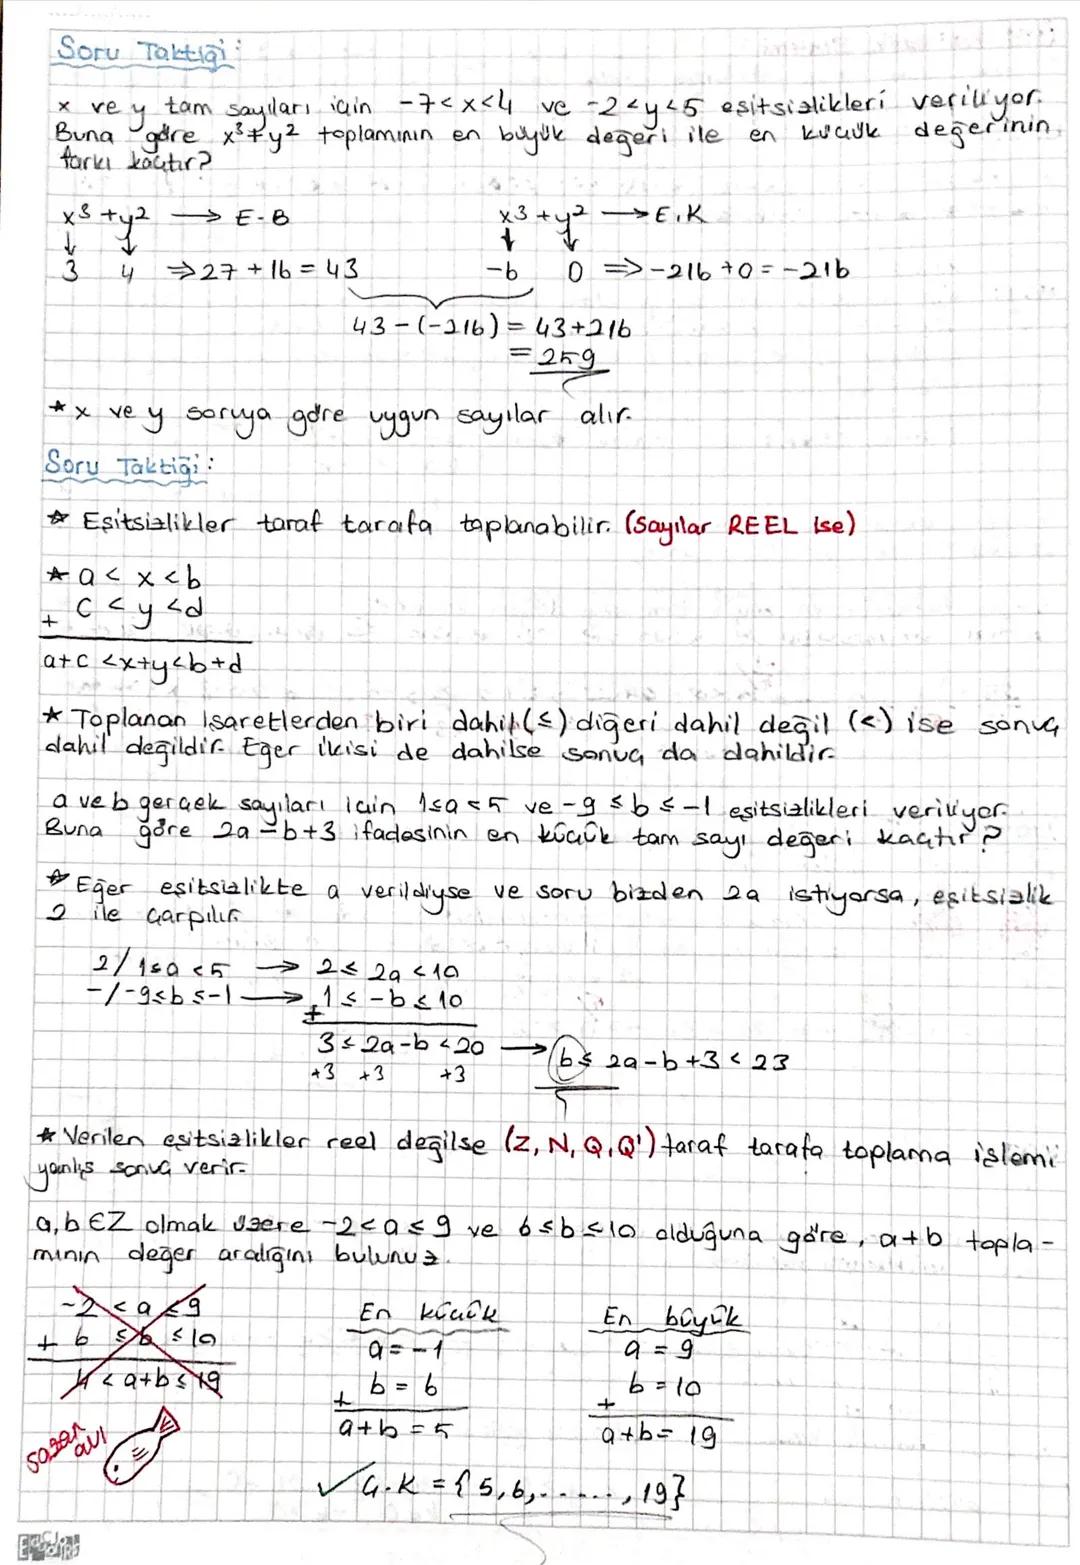 Soru Taktiği:
x ve y tam sayıları için -7<x<4 ve -2<y<5 eşitsizlikleri veriliyor.
Buna göre x³+y² toplamının en büyük değeri ile en küçük değerinin
farkı kaçtır?
x³+y² → E-B
x³+y² → E.K
↓ ↓
3 4 ⇒ 27+16=43
↓ ↓
-6 0 ⇒ -216+0=-216
43-(-216) = 43+216
= 259
* x ve y soruya göre uygun sayılar alır.
Soru Taktiği:
* Eşitsizlikler taraf tarafa toplanabilir. (Sayılar REEL ise)
* a < x < b
+ c < y < d
a+c <x+y<b+d
* Toplanan işaretlerden biri dahil (≤) diğeri dahil değil (<) ise sonuç
dahil değildir. Eğer ikisi de dahilse sonuç da dahildir.
a ve b gerçek sayıları için 1≤a<5 ve -9≤b≤-1 eşitsizlikleri veriliyor.
Buna göre 2a-b+3 ifadesinin en küçük tam sayı değeri kaçtır?
* Eğer eşitsizlikte a verildiyse ve soru bizden 2a istiyorsa, eşitsizlik
2 ile çarpılır.
2/ 1≤a<5 → 2≤ 2a <10
-/-9≤b≤-1 → + 1≤ -b ≤ 10
3≤ 2a-b <20 → 6≤ 2a-b+3 < 23
+3 +3 +3
* Verilen eşitsizlikler reel değilse (Z, N, Q, Q') taraf tarafa toplama işlemi
yanlış sonuç verir.
a,b ∈ Z olmak üzere -2<a≤9 ve 6≤b≤10 olduğuna göre, a+b topla-
mının değer aralığını bulunuz.
-2 < a ≤ 9
+ 6 ≤ b ≤ 10
4 < a+b ≤ 19
sazan
avı
En küçük
a = -1
+ b = 6
a+b = 5
En büyük
a = 9
+ b = 10
a+b = 19
✓ Ç.K = {5,6,......,19}